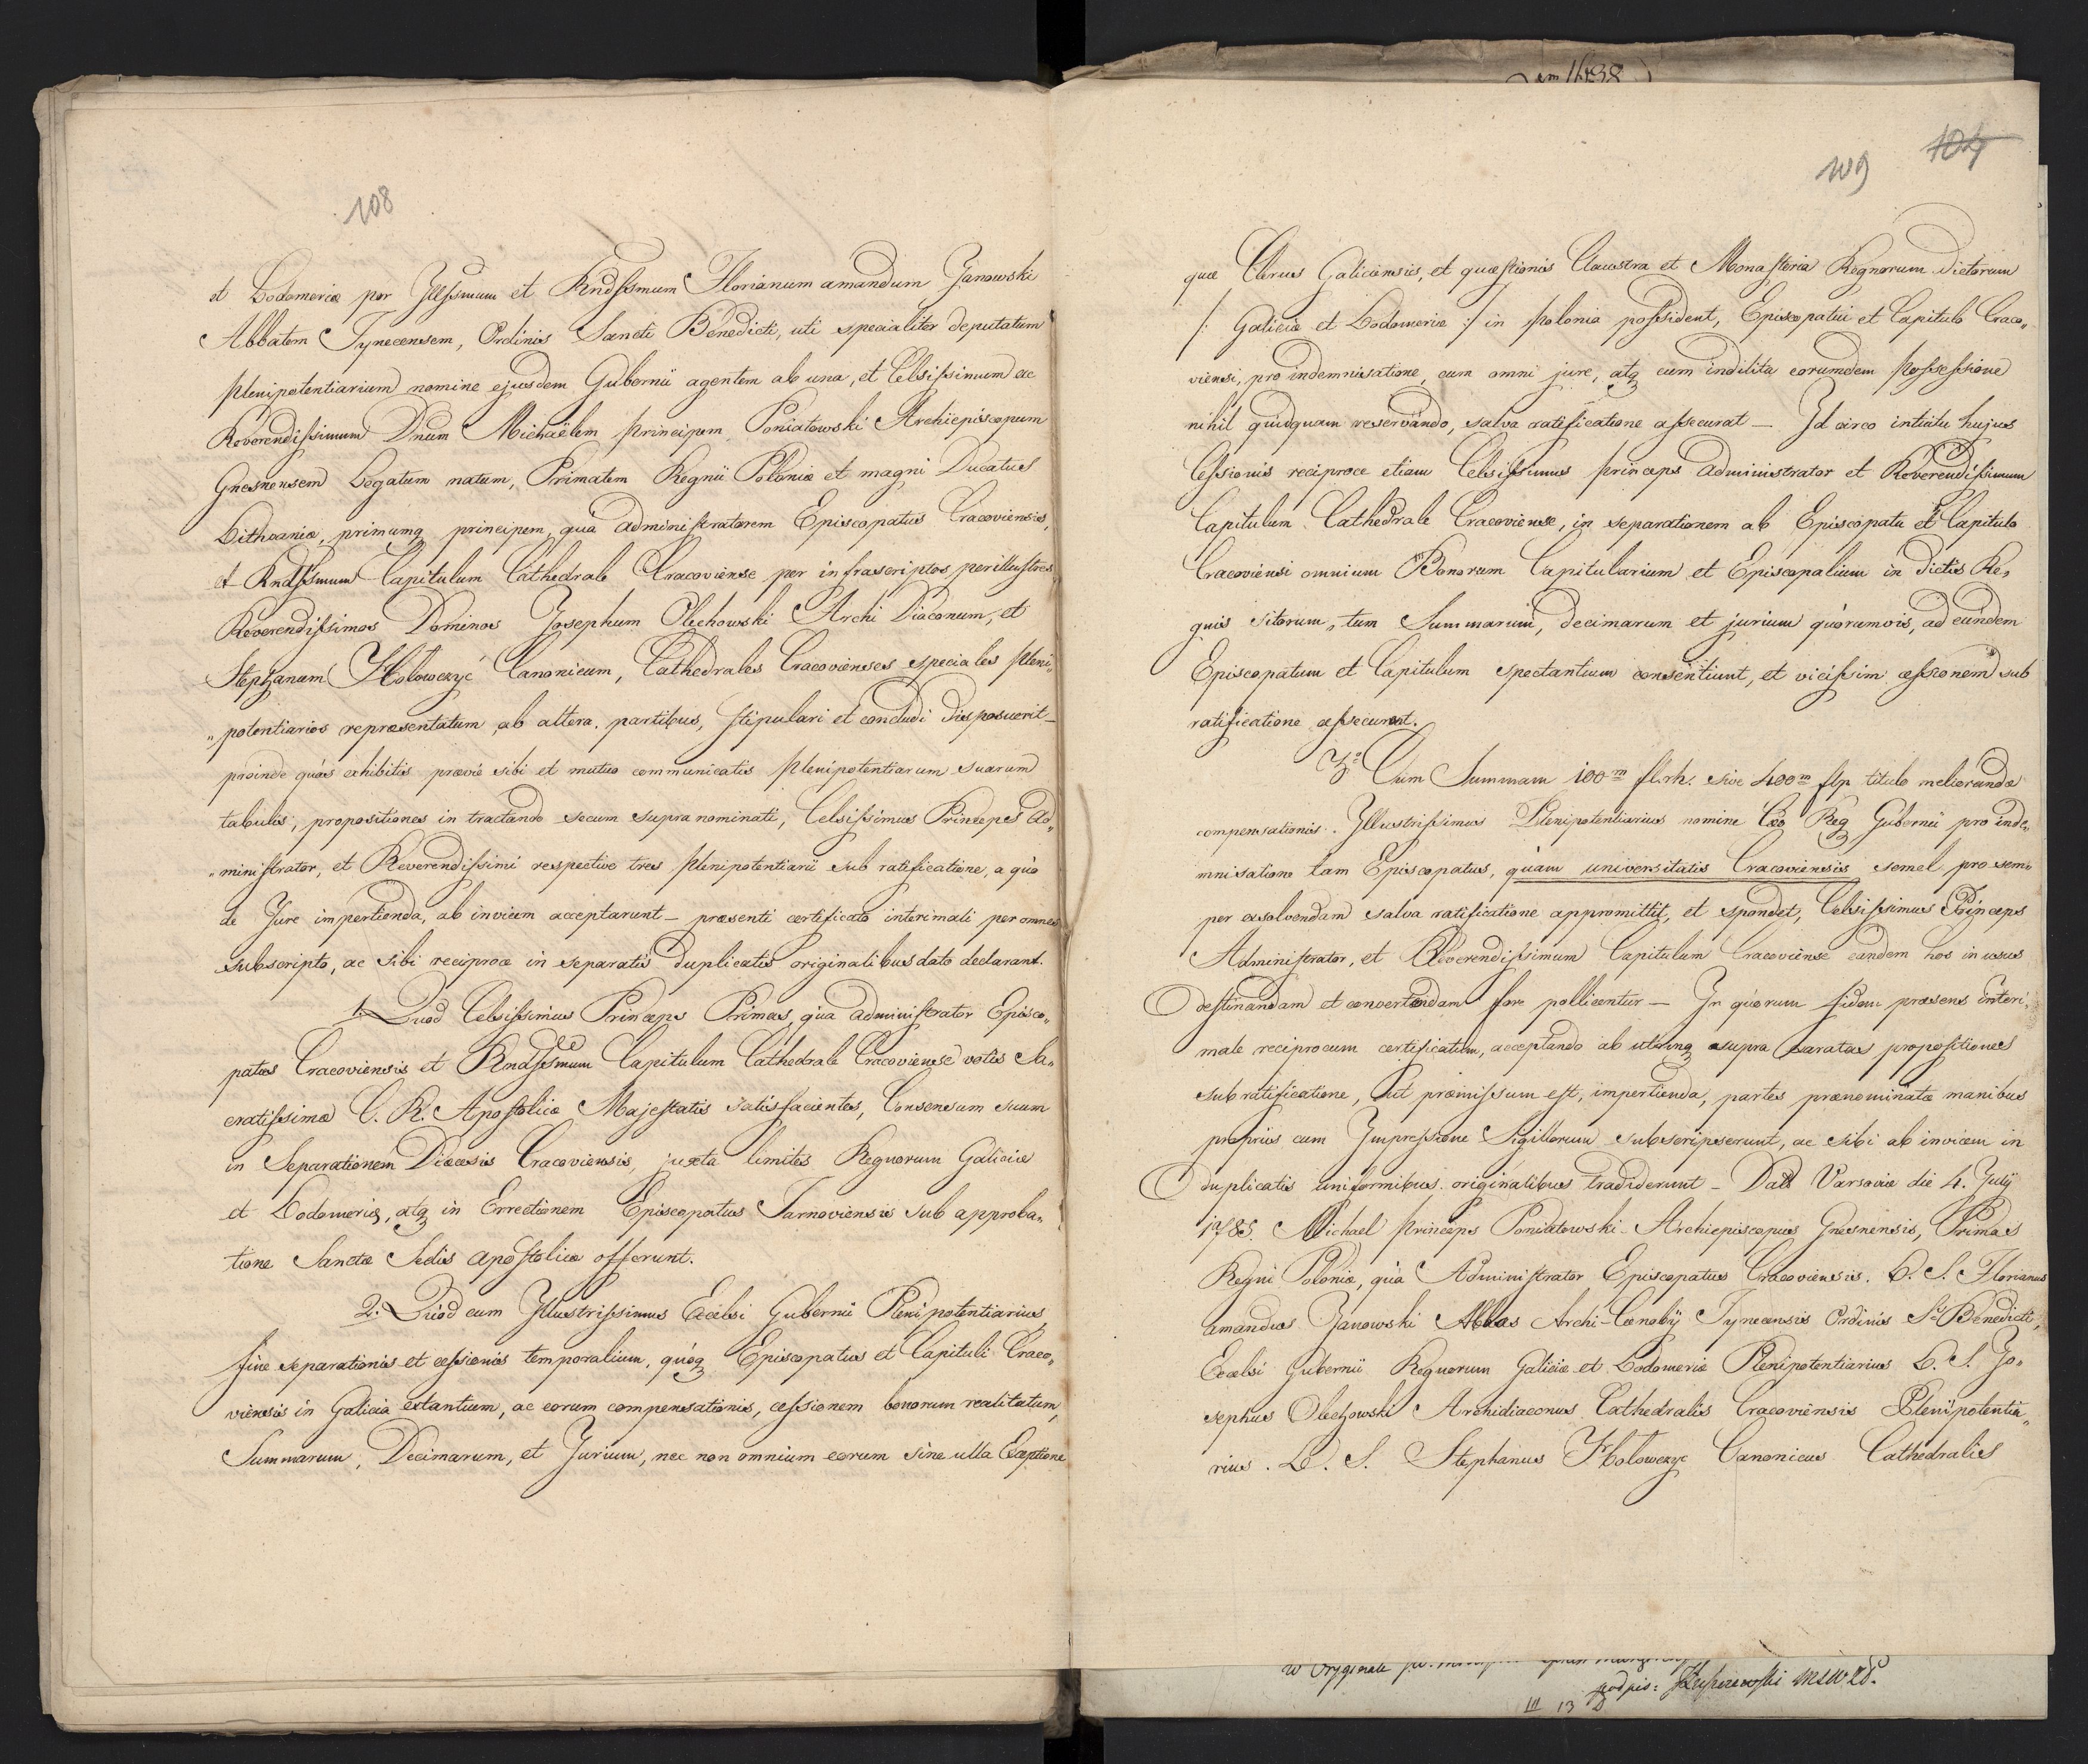 108
et Lodomeriæ per Illssmum et Rndssmum Florianum amandum Janowski
Abbatem Tynecensem, Ordinis Sancti Benedicti, uti specialiter deputatum
plenipotentiarium nomine ejusdem Gubernii agentem ab una, et Celsissimum ac
Reverendissimum Dnum Michaëlem principem Poniatowski Archiepiscopum
Gnesnensem Legatum natum, Primatem Regnii Poloniæ et magni Ducatus
Lithvaniæ, primumq principem, qua administratorem Episcopatus Cracoviensis,
et Rndssmum Capitulum Cathedrale Cracoviense per infrascriptos perillustres
Reverendissimos Dominos Josephum Olechowski Archi Diaconum, et
Stephanum Hołowczyc Canonicum, Cathedrales Cracovienses speciales pleni„
„potentiarios repræsentatum, ab altera partibus, stipulari et concludi disposuerit —
proinde quos exhibitis prævie sibi et mutuo communicatis plenipotentiarum suarum
tabulis, propositiones in tractando secum supra nominati, Celsissimus Princeps Ad„
„ministrator, et Reverendissimi respective tres plenipotentiarii sub ratificatione, a quo
de Jure impertienda, ab invicem acceptarunt — præsenti certificato interimali per omnes
subscripto, ac sibi reciproce in separatis duplicatis originalibus dato declarant.
1. Quod Celsissimus Princeps Primas, qua administrator Episco„
patus Cracoviensis et Rndssmum Capitulum Cathedrale Cracoviense votis Sa„
cratissimæ C. R. Apostolicæ Majestatis satisfacientes, Consensum suum
in Separationem Diæcesis Cracoviensis, juxta limites Regnorum Galiciæ
et Lodomeriæ, atq in Errectionem Episcopatus Tarnoviensis sub approba„
tione Sanctæ Sedis apostolicæ offerunt.
2. Quod cum Illustrissimus Excelsi Gubernii Plenipotentiarius,
fine separationis et cessionis temporalium, quoq Episcopatus et Capituli Craco„
viensis in Galicia extantium, ac eorum compensationis, cessionem bonorum realitatum,
Summarum, Decimarum, et Jurium, nec non omnium eorum sine ulla Exceptione
109 104
quæ Clerus Galiciensis, et quæstionis Claustra et Monasteria Regnorum dictorum
/: Galiciæ et Lodomeriæ :/ in polonia possident, Episcopatui et Capitulo Craco„
viensi, pro indemnisatione, cum omni jure, atq cum indilita eorumdem possessione
nihil quidquam reservando, salva ratificatione assecurat — Id circo intuitu hujus
Cessionis reciproce etiam Celsissimus princeps administrator et Reverendissimum
Capitulum Cathedrale Cracoviense, in separationem ab Episcopatu et Capitulo
Cracoviensi omnium Bonorum Capitularium et Episcopalium in dictis Re„
gnis sitorum, tum Summarum, decimarum et jurium quorumvis, ad eundem
Episcopatum et Capitulum spectantium consentiunt, et vicissim cessionem sub
ratificatione assecurant.
3º Cum Summam 100m fl.rh. sive 400m flp titulo meliorandæ
compensationis. Illustrissimus Plenipotentiarius nomine Cæo Reg Gubernii pro inde„
mnisatione tam Episcopatus, quam universitatis Cracoviensis semel pro sem„
per exsolvendam salva ratificatione appromittit, et spondet, Celsissimus Princeps
Administrator, et Reverendissimum Capitulum Cracoviense eandem hos in usus
destinandam et convertendam fore pollicentur — In quorum fidem præsens Interi„
male reciprocum certificatum, acceptando ab utrinq supra paratas propositiones
sub ratificatione, ut præmissum est, impertienda, partes prænominatæ manibus
propriis cum Impressione Sigillorum subscripserunt, ac sibi ab invicem in
duplicatis uniformibus originalibus tradiderunt — Datt Varsaviæ die 4. July
1785. Michael princeps Poniatowski Archiepiscopus Gnesnensis, Primas
Regni Poloniæ, qua Administrator Episcopatus Cracoviensis. L. S. Florianus
amandus Janowski Abbas Archi-Cœnobij Tynecensis Ordinis St Benedicti,
Excelsi Gubernii Regnorum Galiciæ et Lodomeriæ Plenipotentiarius L. S. Jo„
sephus Olechowski Archidiaconus Cathedralis Cracoviensis Plenipotentia„
rius. L. S. Stephanus Hołowczyc Canonicus Cathedralis
w Oryginale
podpis:
III 13